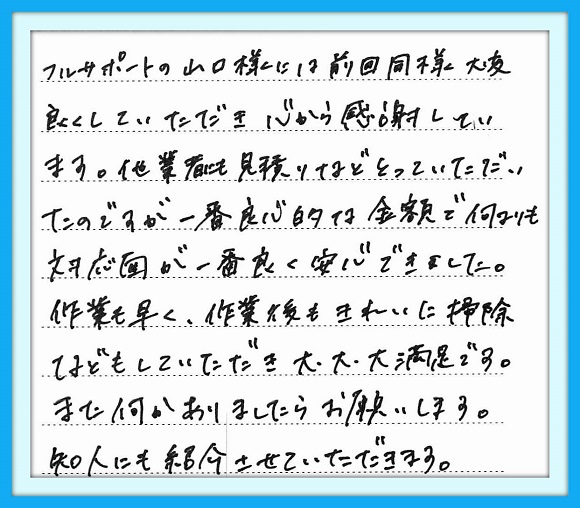 フルサポートの山口様には前回同様大変
良くしていただき心から感謝してい
ます。他業者にも見積りなどとっていただい
たのですが一番良心的な金額で何よりも
対応面が一番良く安心できました。
作業も早く、作業後もきれいに掃除
などもしていただき大・大・大満足です。
また何かありましたらお願いします。
知人にも紹介させていただきます。